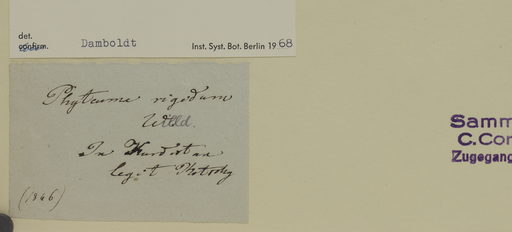 det.
confirm. Damboldt Inst. Syst. Bot. Berlin 1968
Phyteuma rigidum
Willd.
In Kurdistan
legit Kotschy
(1846)
Samm
C. Cor
Zugegang